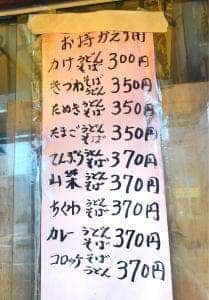 お持かえり用
かけ うどん そば 300円
きつね そば うどん 350円
たぬき うどん そば 350円
たまご うどん そば 350円
てんぷら うどん そば 370円
山菜 うどん そば 370円
ちくわ うどん そば 370円
カレー うどん そば 370円
コロッケ そば うどん 370円